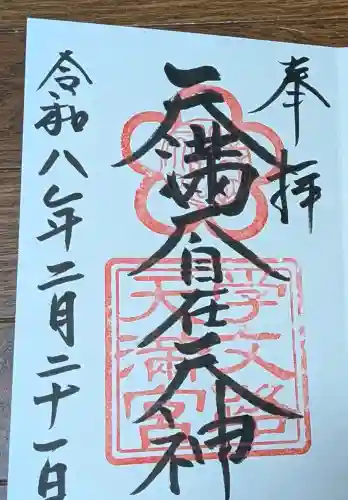 奉拝
天満大自在天神
学文路
天満宮
令和八年二月二十一日